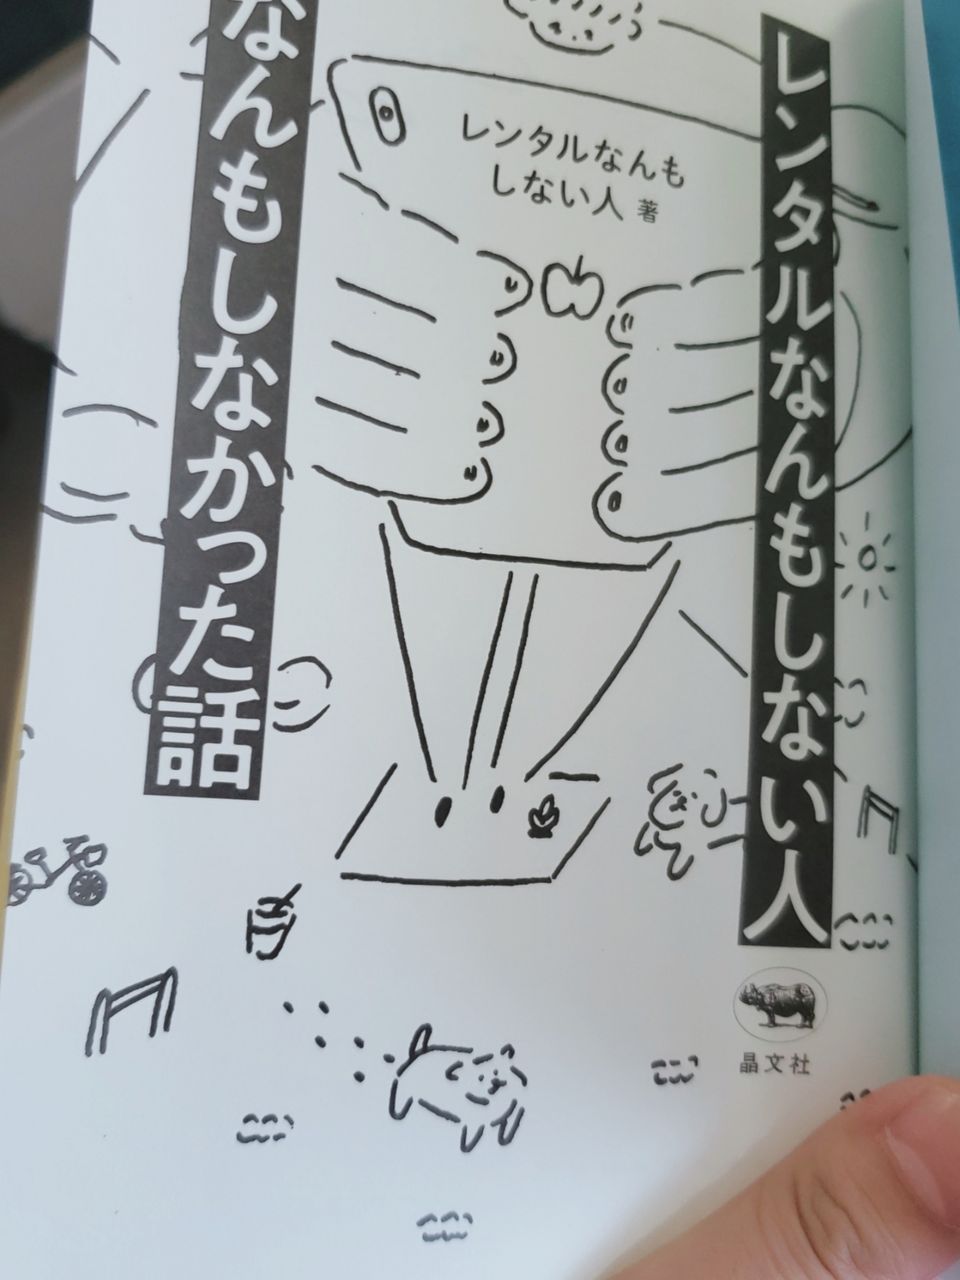 レンタルなんもしない人
なんもしなかった話
レンタルなんも
しない人 著
晶文社